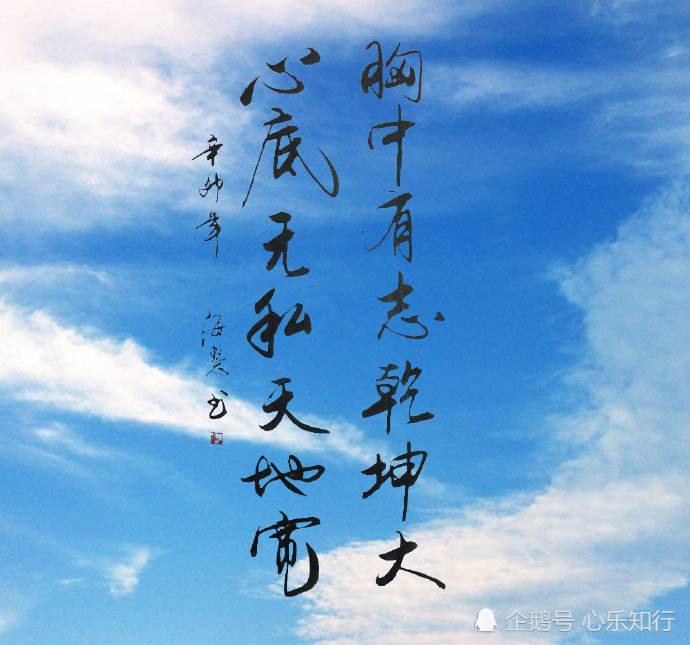 胸中有志乾坤大
心底无私天地宽
辛卯年
海慧书
企鹅号 心乐知行